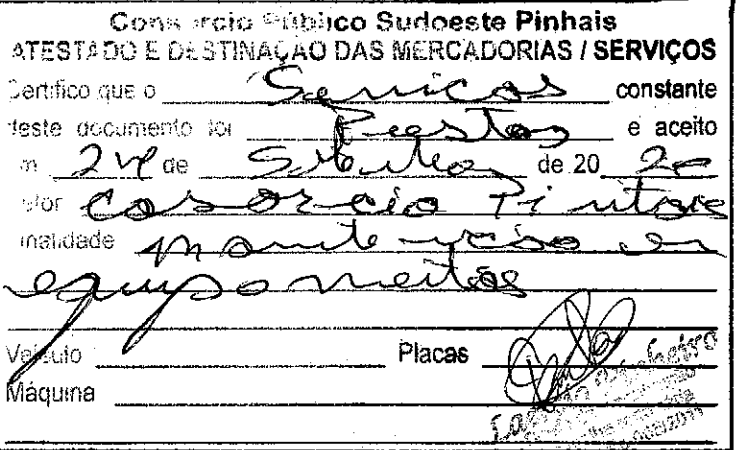 Consorcio Público Sudoeste Pinhais
ATESTADO E DESTINAÇAO DAS MERCADORIAS / SERVIÇOS
Certifico que o Servicos constante
deste documento foi Prestos e aceito
em 24 de Setembro de 20 20
Setor Cosorcio Pinhais
Finalidade manutencao em
equipomentos
Veículo Placas
Máquina